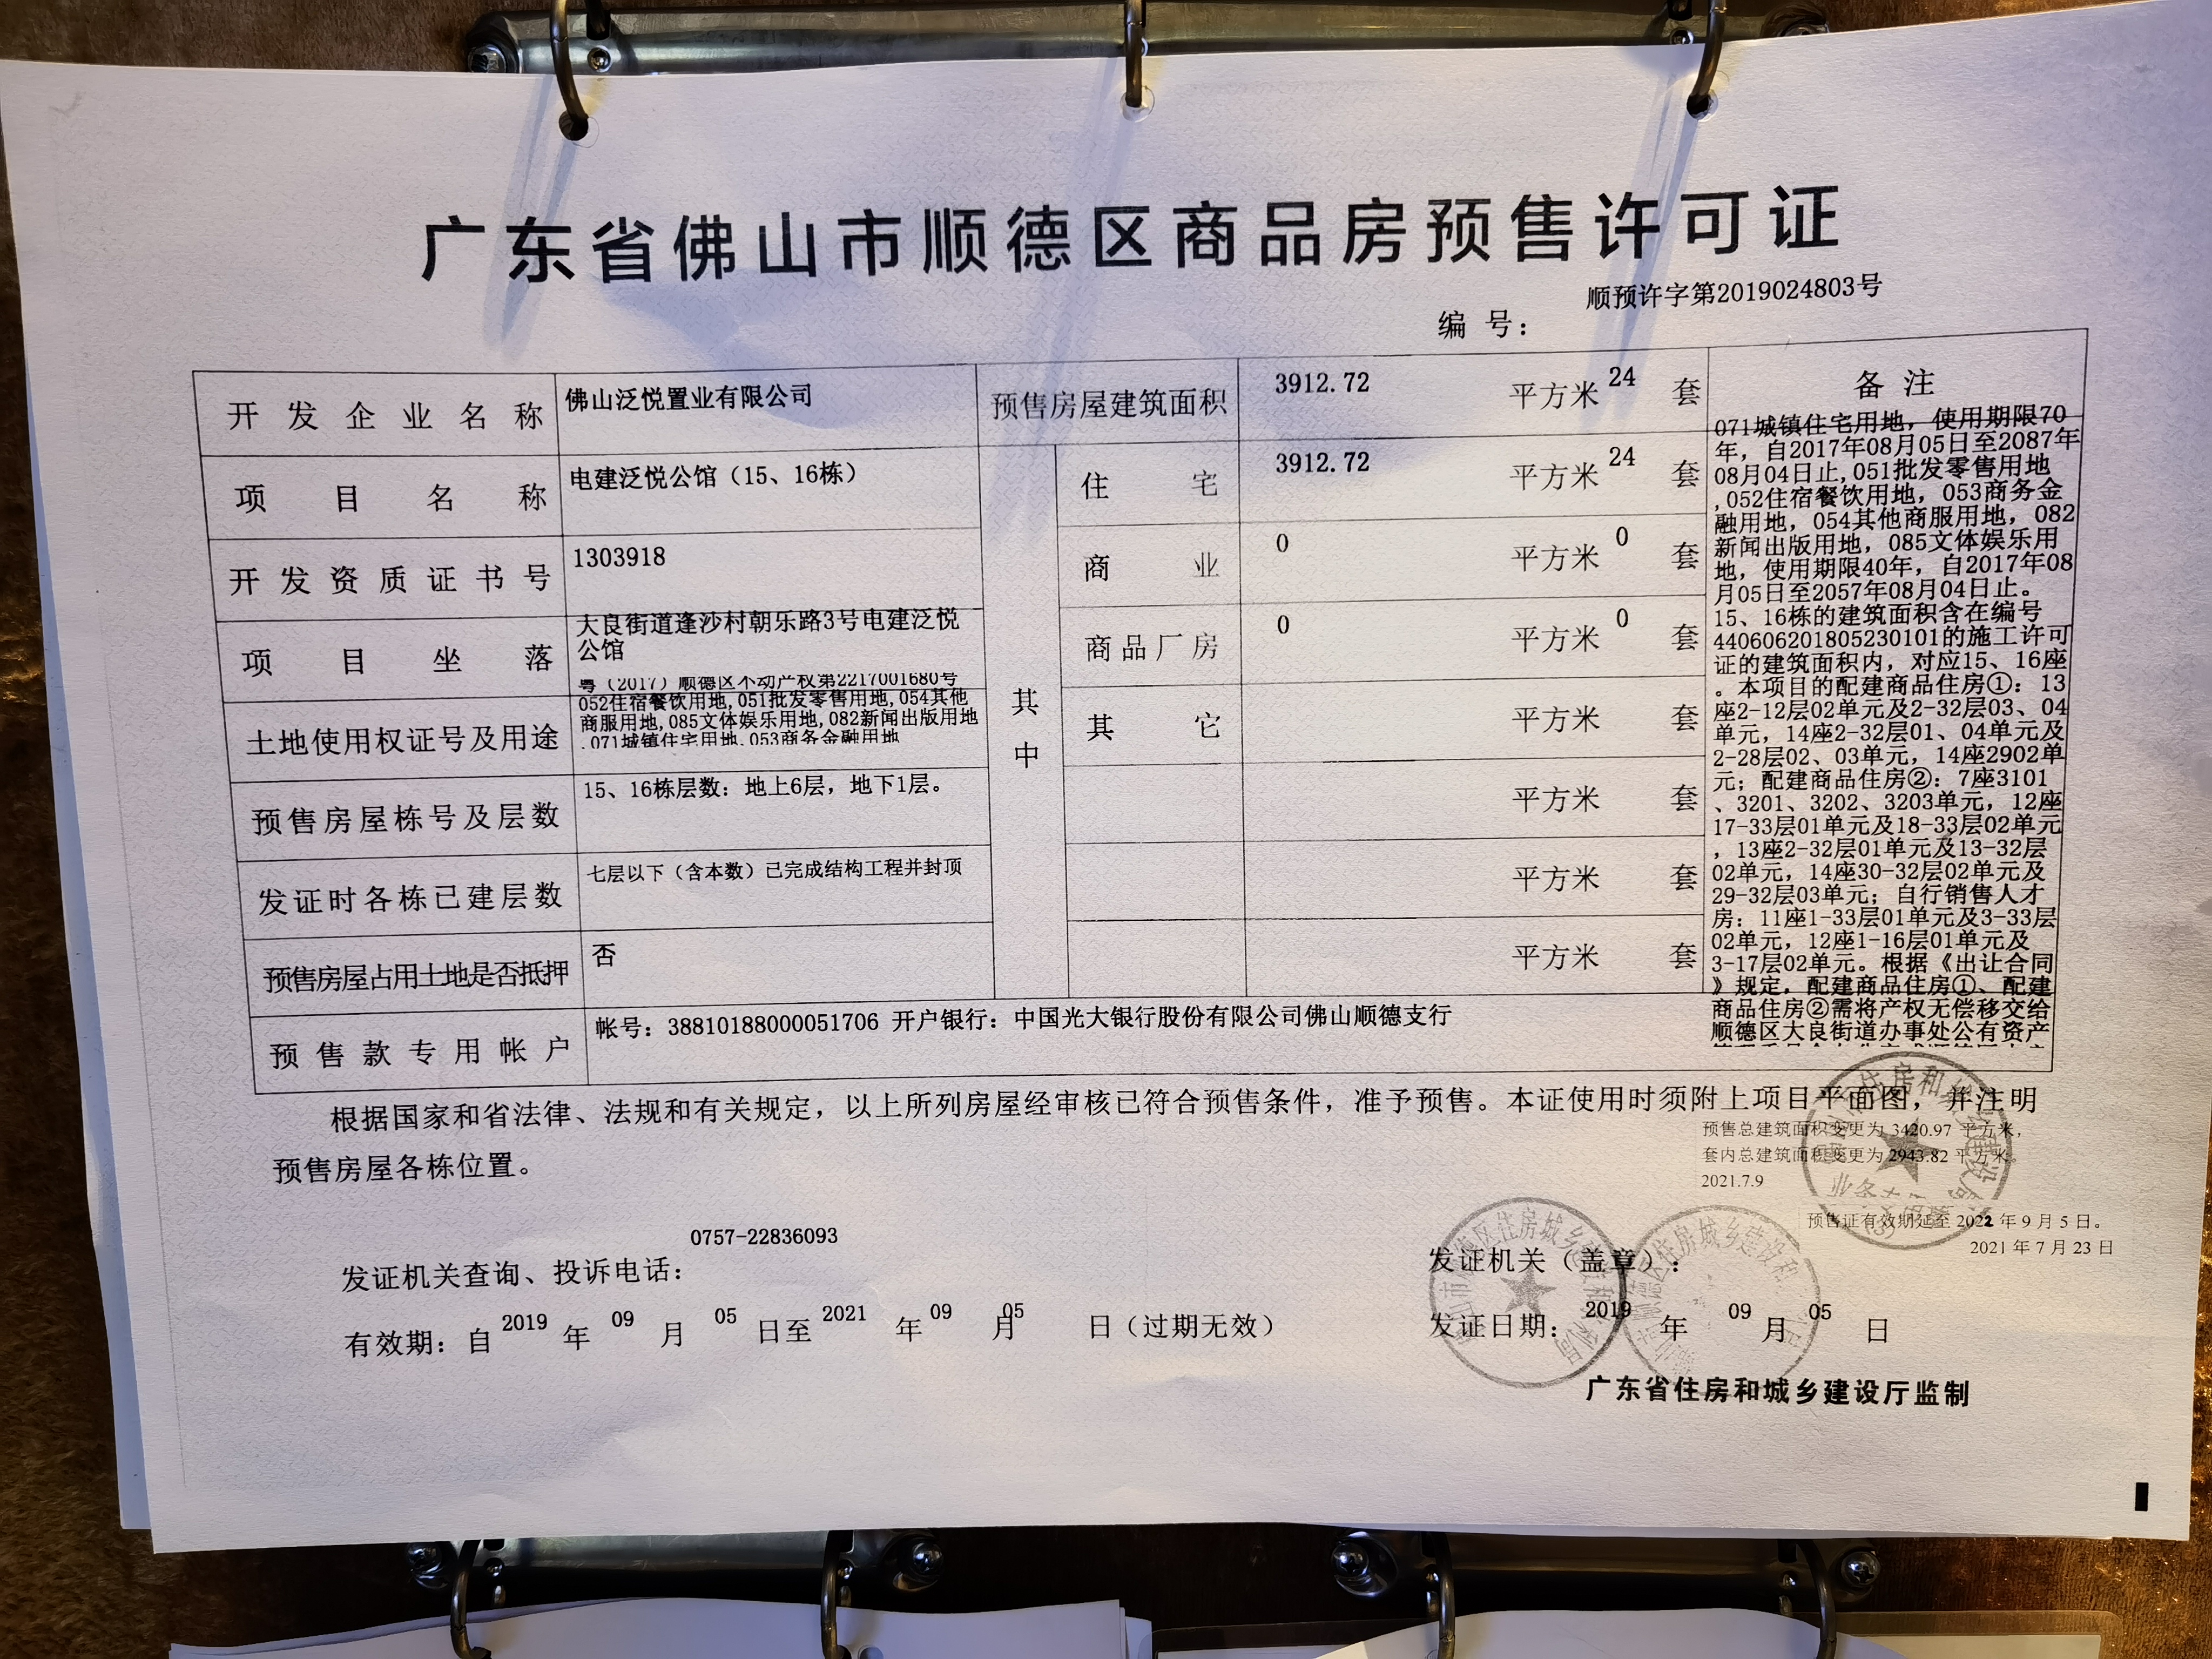 广东省佛山市顺德区商品房预售许可证
顺预许字第2019024803号
编 号：
开发企业名称 佛山泛悦置业有限公司 预售房屋建筑面积 3912.72 平方米 24 套
项目名称 电建泛悦公馆（15、16栋） 住宅 3912.72 平方米 24 套
开发资质证书号 1303918 商业 0 平方米 0 套
项目坐落 大良街道逢沙村朝乐路3号电建泛悦
公馆
商品厂房 0 平方米 0 套
土地使用权证号及用途 粤（2017）顺德区不动产权第2217001680号
052住宿餐饮用地,051批发零售用地,054其他
商服用地,085文体娱乐用地,082新闻出版用地
,071城镇住宅用地,053商务金融用地
其它 平方米 套
其中
预售房屋栋号及层数 15、16栋层数：地上6层，地下1层。 平方米 套
发证时各栋已建层数 七层以下（含本数）已完成结构工程并封顶 平方米 套
预售房屋占用土地是否抵押 否 平方米 套
预售款专用帐户 帐号：38810188000051706 开户银行：中国光大银行股份有限公司佛山顺德支行
备注
071城镇住宅用地，使用期限70
年，自2017年08月05日至2087年
08月04日止,051批发零售用地
,052住宿餐饮用地，053商务金
融用地，054其他商服用地，082
新闻出版用地，085文体娱乐用
地，使用期限40年，自2017年08
月05日至2057年08月04日止。
15、16栋的建筑面积含在编号
440606201805230101的施工许可
证的建筑面积内，对应15、16座
。本项目的配建商品住房①：13
座2-12层02单元及2-32层03、04
单元，14座2-32层01、04单元及
2-28层02、03单元，14座2902单
元；配建商品住房②：7座3101
、3201、3202、3203单元，12座
17-33层01单元及18-33层02单元
，13座2-32层01单元及13-32层
02单元，14座30-32层02单元及
29-32层03单元；自行销售人才
房：11座1-33层01单元及3-33层
02单元，12座1-16层01单元及
3-17层02单元。根据《出让合同
》规定，配建商品住房①、配建
商品住房②需将产权无偿移交给
顺德区大良街道办事处公有资产
根据国家和省法律、法规和有关规定，以上所列房屋经审核已符合预售条件，准予预售。本证使用时须附上项目平面图，并注明
预售房屋各栋位置。
预售总建筑面积变更为 3420.97 平方米，
套内总建筑面积变更为 2943.82 平方米
2021.7.9
预售证有效期延至 2022 年 9 月 5 日。
2021 年 7 月 23 日
0757-22836093
发证机关查询、投诉电话：
发证机关（盖章）：
有效期：自 2019 年 09 月 05 日至 2021 年 09 月 05 日（过期无效）
发证日期： 2019 年 09 月 05 日
广东省住房和城乡建设厅监制